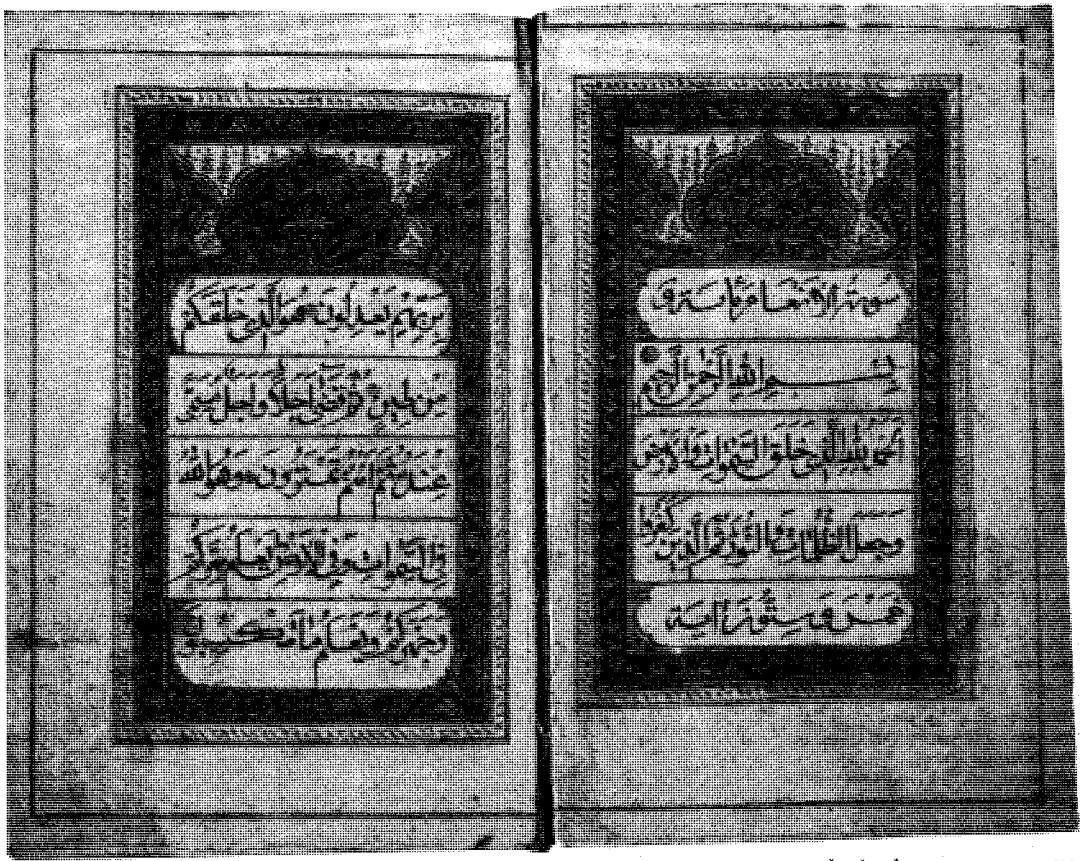 سورة الانعام مائة و
بِسْمِ اللهِ الرَّحْمنِ الرَّحِيمِ
اَلْحَمْدُ لِلهِ الَّذِي خَلَقَ السَّمَوَاتِ وَالْاَرْضَ
وَجَعَلَ الظُّلُمَاتِ وَالنُّورَ ثُمَّ الَّذِينَ كَفَرُوا
خمس وستون آية
بِرَبِّهِمْ يَعْدِلُونَ هُوَ الَّذِي خَلَقَكُمْ
مِنْ طِينٍ ثُمَّ قَضَى اَجَلًا وَاَجَلٌ مُسَمًّى
عِنْدَهُ ثُمَّ اَنْتُمْ تَمْتَرُونَ وَهُوَ اللهُ
فِي السَّمَوَاتِ وَفِي الْاَرْضِ يَعْلَمُ سِرَّكُمْ
وَجَهْرَكُمْ وَيَعْلَمُ مَا تَكْسِبُونَ